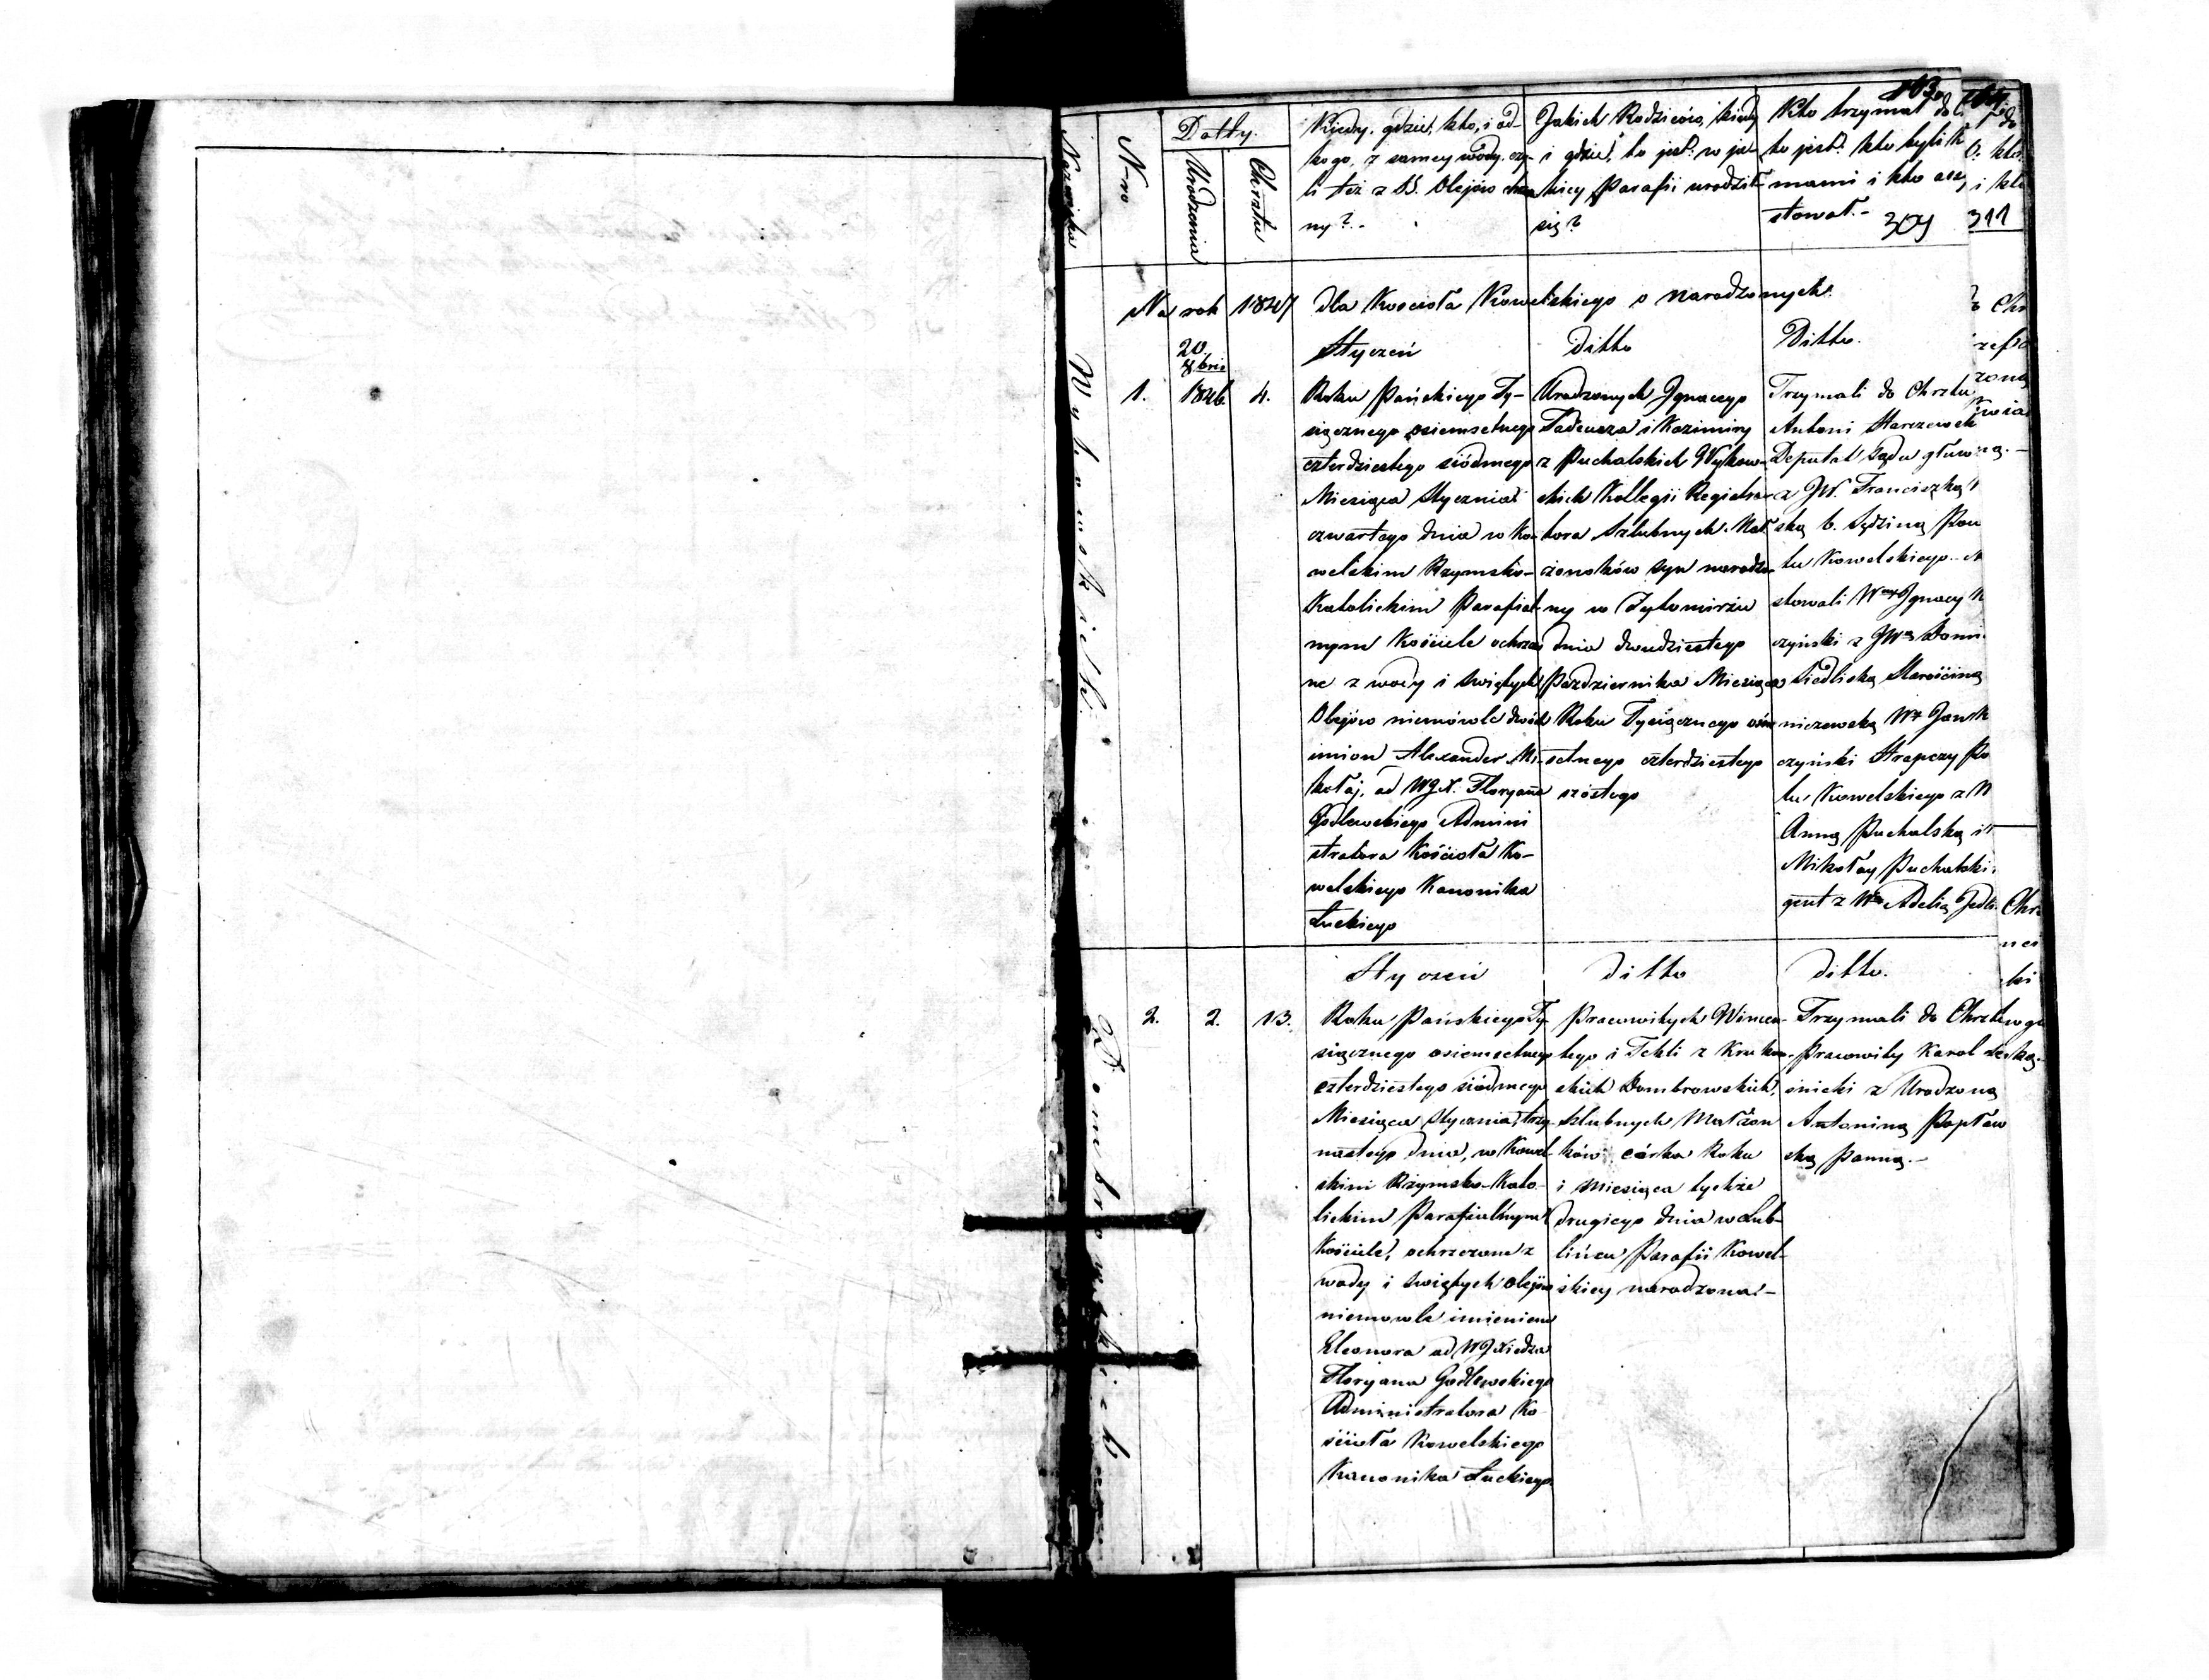 Nazwiska
N-ro
Datty.
Urodzenia
Chrztu
Kiedy, gdzie, kto, i od
kogo, z samey wody, czy-
li też z SS. Olejów
ny?-
Jakich Rodziców, kiedy
i gdzie, to jest: w ja-
kiey Parafii urodził
się?
Kto trzymał do
to jest: kto byli
mami i kto
stował.-
309
311
Na rok 1847 dla Kościoła Kowelskiego o narodzonych.
Styczeń
Ditto
Ditto.
Wykowskich.
1.
20.
8bris
1846
4.
Roku Pańskiego Ty-
siącznego osiemsetnego
czterdziestego siódmego
Miesiąca Stycznia
czwartego dnia w Ko-
welskim Rzymsko-
Katolickim Parafial-
nym Kościele ochrzczo
ne z wody i świętych
Olejów niemówle dwóch
imion Alexander Mi-
kołaj, od WJX. Floryana
Godlewskiego Admini
stratora Kościoła Ko-
welskiego Kanonika
Łuckiego
Urodzonych, Ignacego
Tadeusza i Kazimiry
z Puchalskich Wykow-
skich Kollegii Registra-
tora szlubnych Mał
żonków syn narodzo-
ny w Żytomirzu
dnia dwudziestego
Października Miesiąca
Roku Tysiącznego ośm
setnego czterdziestego
szóstego
Trzymali do Chrztu
Antoni Starzewsk
Deputat Sądu głów
z JW. Franciszką
ską b. Sędziną Pow
tu Kowelskiego.
stowali Wny Ignacy
czyński z JWą Domi
Siedliską Starościną
niczewską Wny Jan
czyński Strapczy Po
tu Kowelskiego z
Anną Puchalską i
Mikołay Puchalski
gent z Wą Adelią Jedli
Styczeń
ditto
ditto.
Dombrowskich
2.
2.
13.
Roku Pańskiego Ty-
siącznego osiemsetnego
czterdziestego siódmego
Miesiąca Stycznia, trzy-
nastego dnia, w Kowel-
skim Rzymsko-Kato-
lickim Parafialnym
Kościele, ochrzczone z
wody i świętych olejów
niemowle imieniem
Eleonora od WJXiędza
Floryana Godlewskiego
Administratora Ko-
ścioła Kowelskiego
Kanonika Łuckiego
Pracowitych Wincen-
tego i Tekli z Krukow-
skich Dombrowskich,
szlubnych Małżon
ków córka Roku
i miesiąca tychże
drugiego dnia w Lub-
lińcu Parafii Kowel-
skiey narodzona.-
Trzymali do Chrztu
Pracowity Karol
śnicki z Urodzoną
Antoniną Popław
ską Panną.-